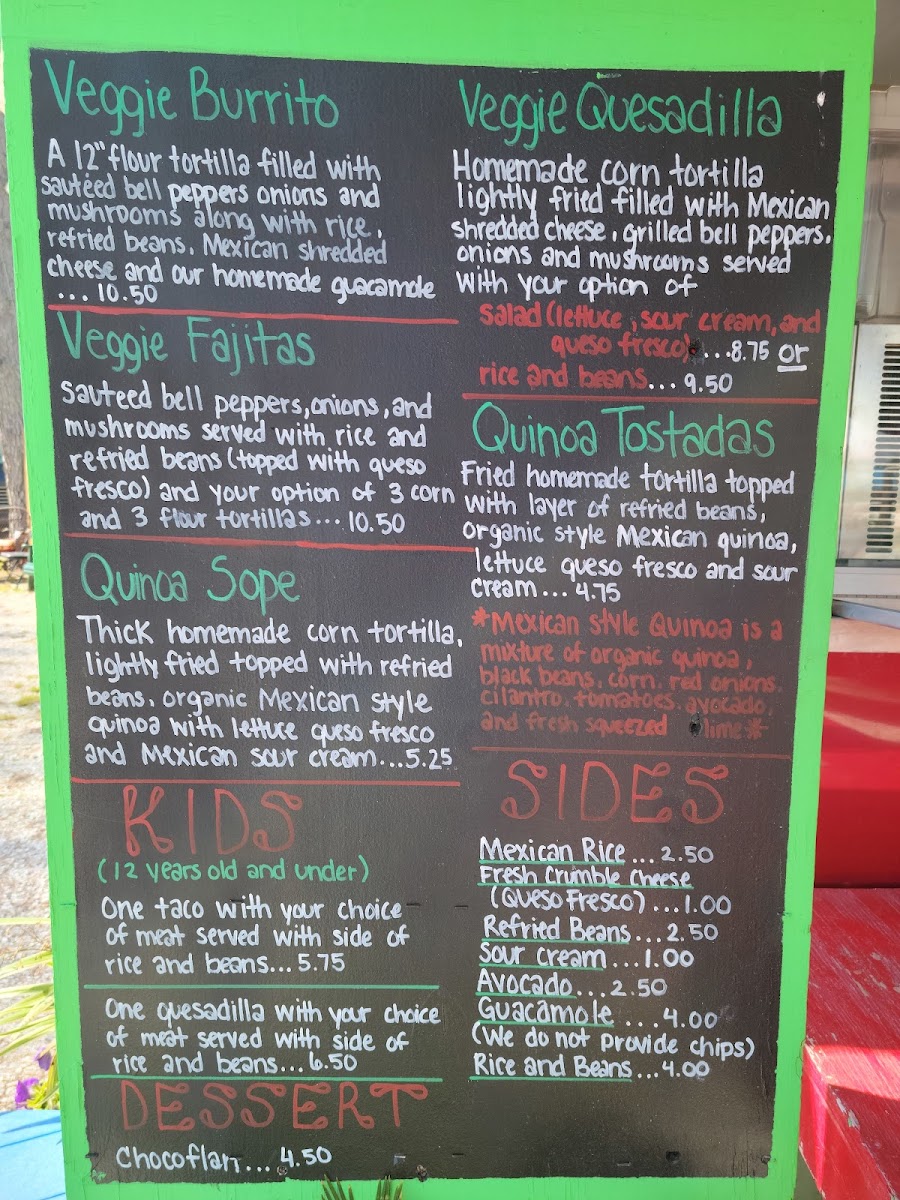 Veggie Burrito
A 12" flour tortilla filled with
sautéed bell peppers onions and
mushrooms along with rice,
refried beans, Mexican shredded
cheese and our homemade guacamole
... 10.50
Veggie Fajitas
Sauteed bell peppers, onions, and
mushrooms served with rice and
refried beans (topped with queso
fresco) and your option of 3 corn
and 3 flour tortillas... 10.50
Quinoa Sope
Thick homemade corn tortilla,
lightly fried topped with refried
beans, organic Mexican style
quinoa with lettuce queso fresco
and Mexican sour cream...5.25
KIDS
(12 years old and under)
One taco with your choice
of meat served with side of
rice and beans... 5.75
One quesadilla with your choice
of meat served with side of
rice and beans...6.50
DESSERT
Chocoflan... 4.50
Veggie Quesadilla
Homemade corn tortilla
lightly fried filled with Mexican
shredded cheese, grilled bell peppers,
onions and mushrooms served
with your option of
salad (lettuce, sour cream, and
queso fresco) ...8.75 or
rice and beans... 9.50
Quinoa Tostadas
Fried homemade tortilla topped
with layer of refried beans,
organic style Mexican quinoa,
lettuce queso fresco and sour
cream... 4.75
*Mexican style Quinoa is a
mixture of organic quinoa,
black beans, corn, red onions,
cilantro, tomatoes, avocado,
and fresh squeezed lime*
SIDES
Mexican Rice ... 2.50
Fresh Crumble Cheese
(Queso Fresco) ...1.00
Refried Beans...2.50
Sour cream ...1.00
Avocado...2.50
Guacamole ...4.00
(We do not provide chips)
Rice and Beans ...4.00